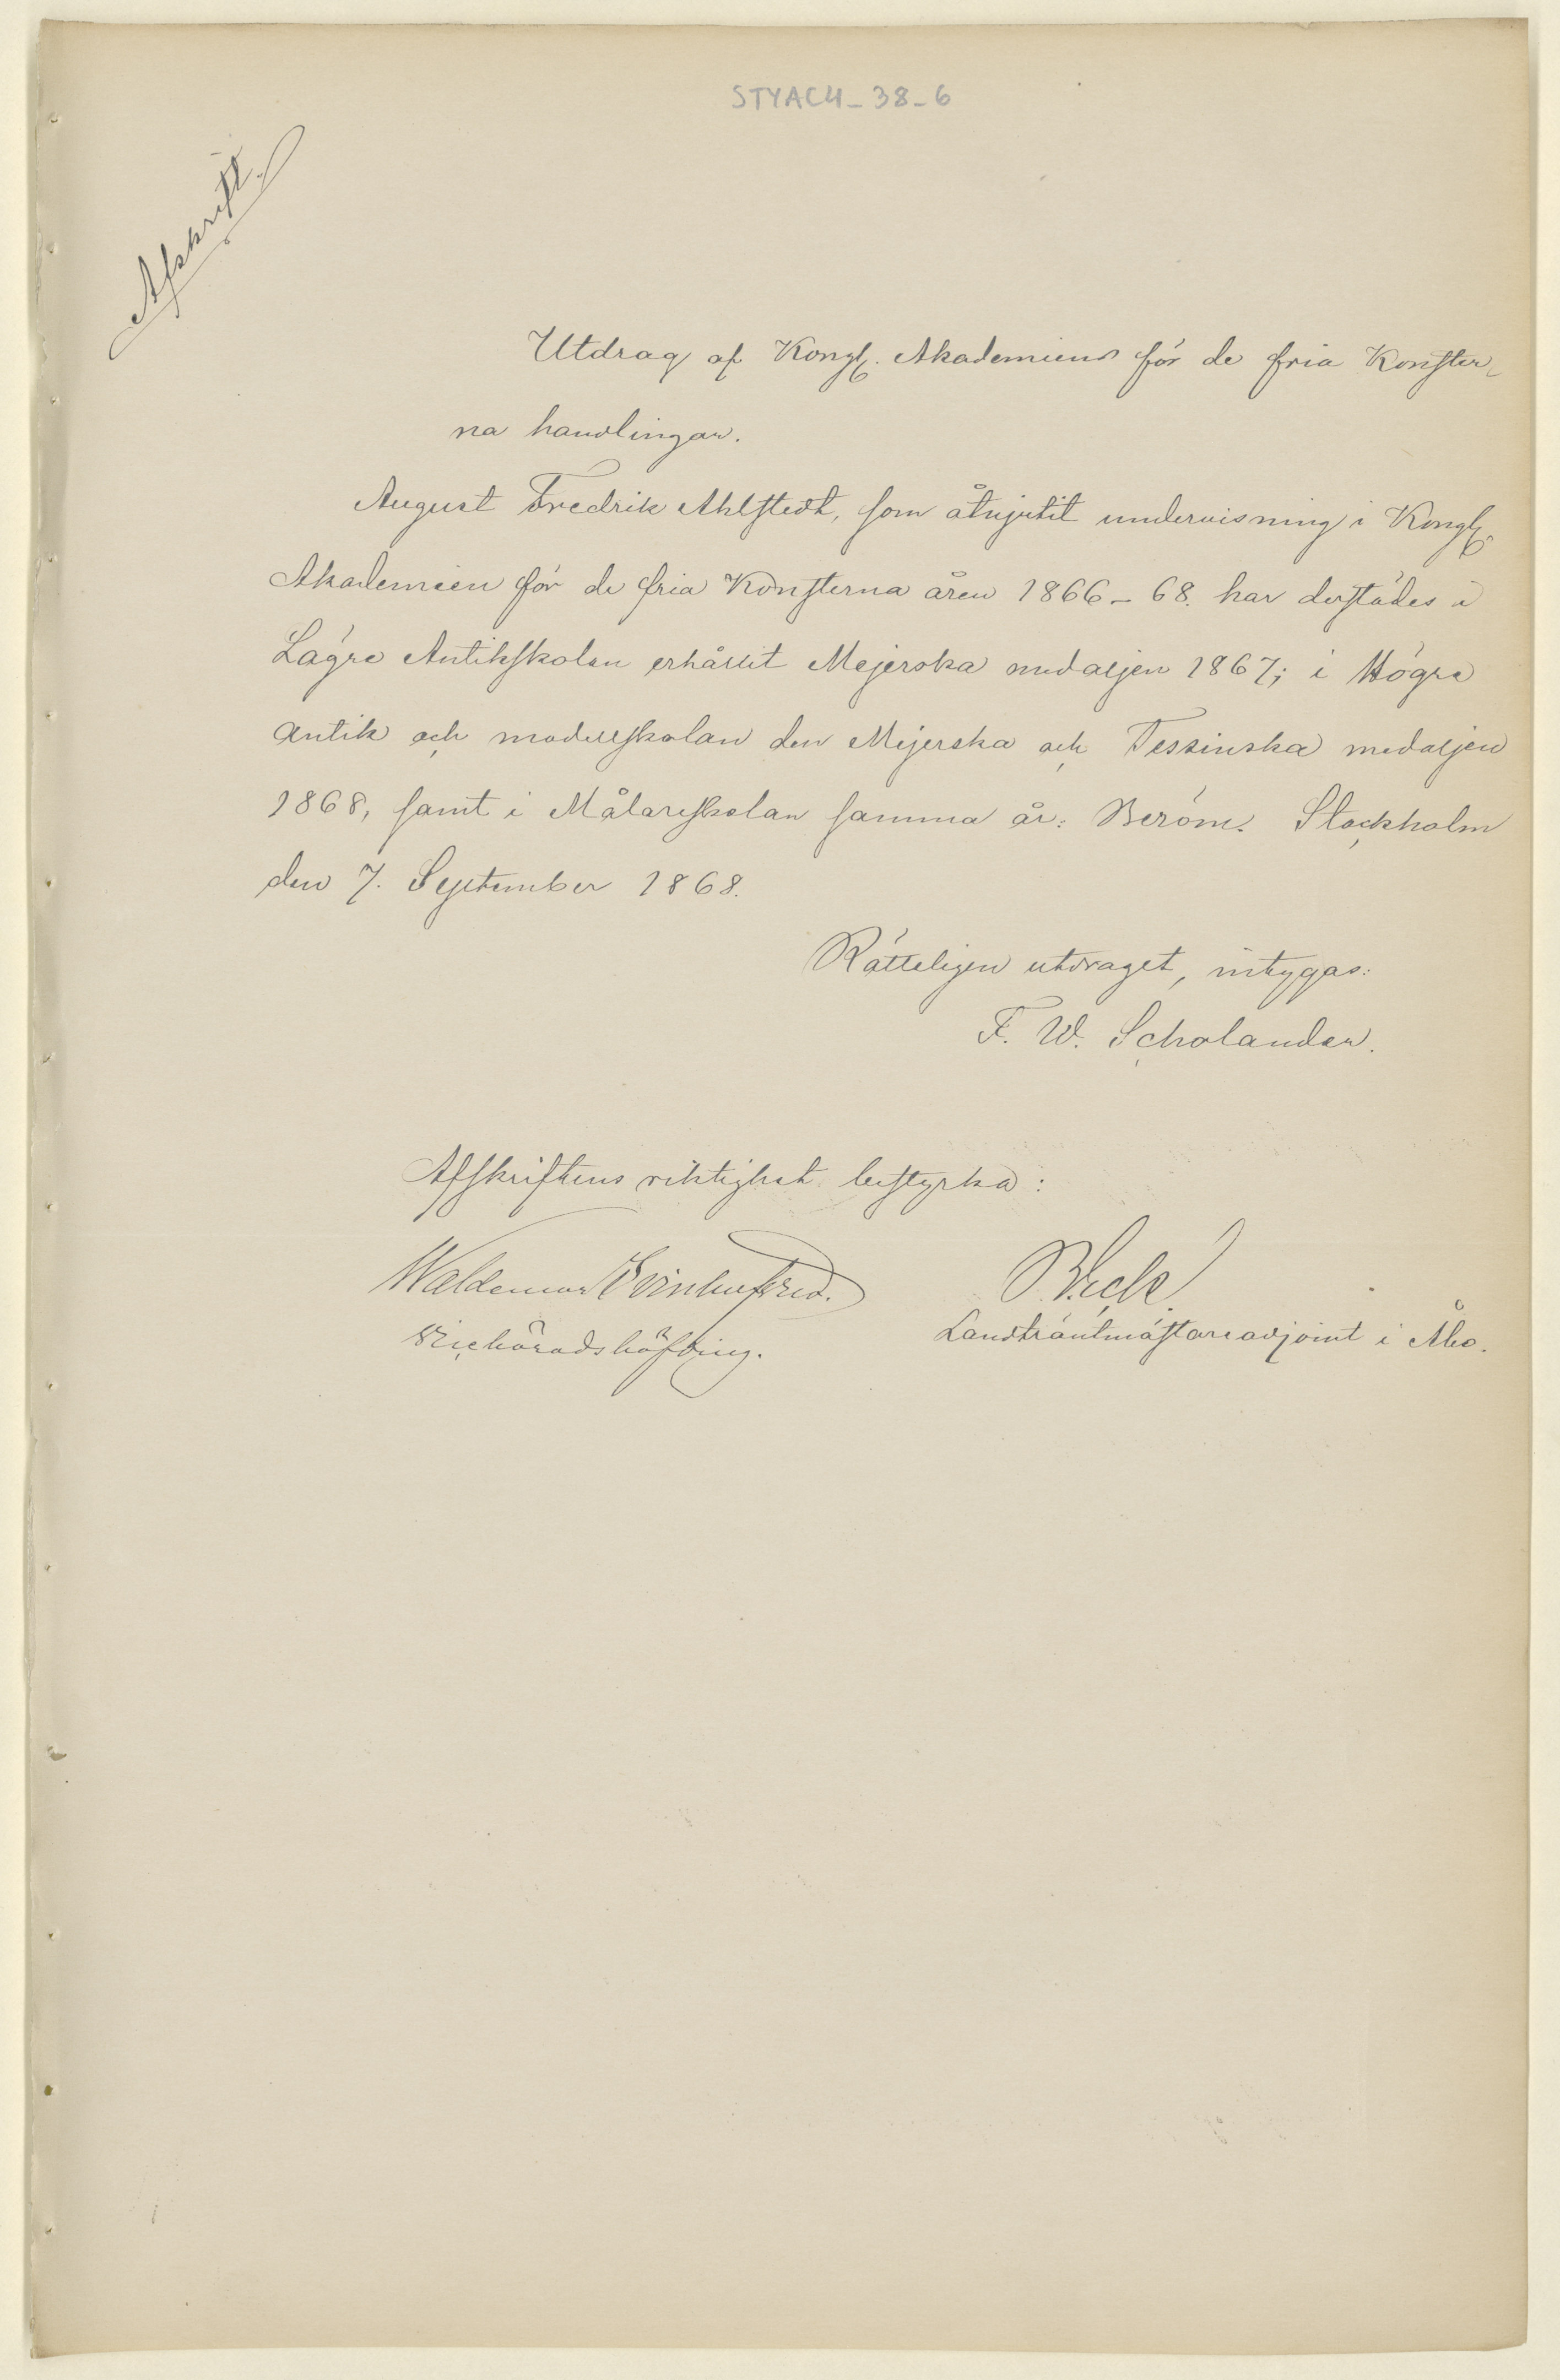 STYAC4_38_6
Afskrift.
Utdrag af Kongl. Akademiens för de fria Konster-
na handlingar.
August Fredrik Ahlstedt, som åtnjutit undervisning i Kongl.
Akademien för de fria Konsterna åren 1866-68. har derstädes i
Lägre Antikskolan erhållit Mejerska medaljen 1867; i Högre
Antik och modellskolan den Mejerska och Tessinska medaljen
1868, samt i Målareskolan samma år: Beröm. Stockholm
den 7. September 1868.
Rätteligen utdraget, intygas:
F. W. Scholander.
Afskriftens riktighet bestyrka:
Waldemar
Vicehäradshöfding.
Landträntmästareadjoint i Åbo.